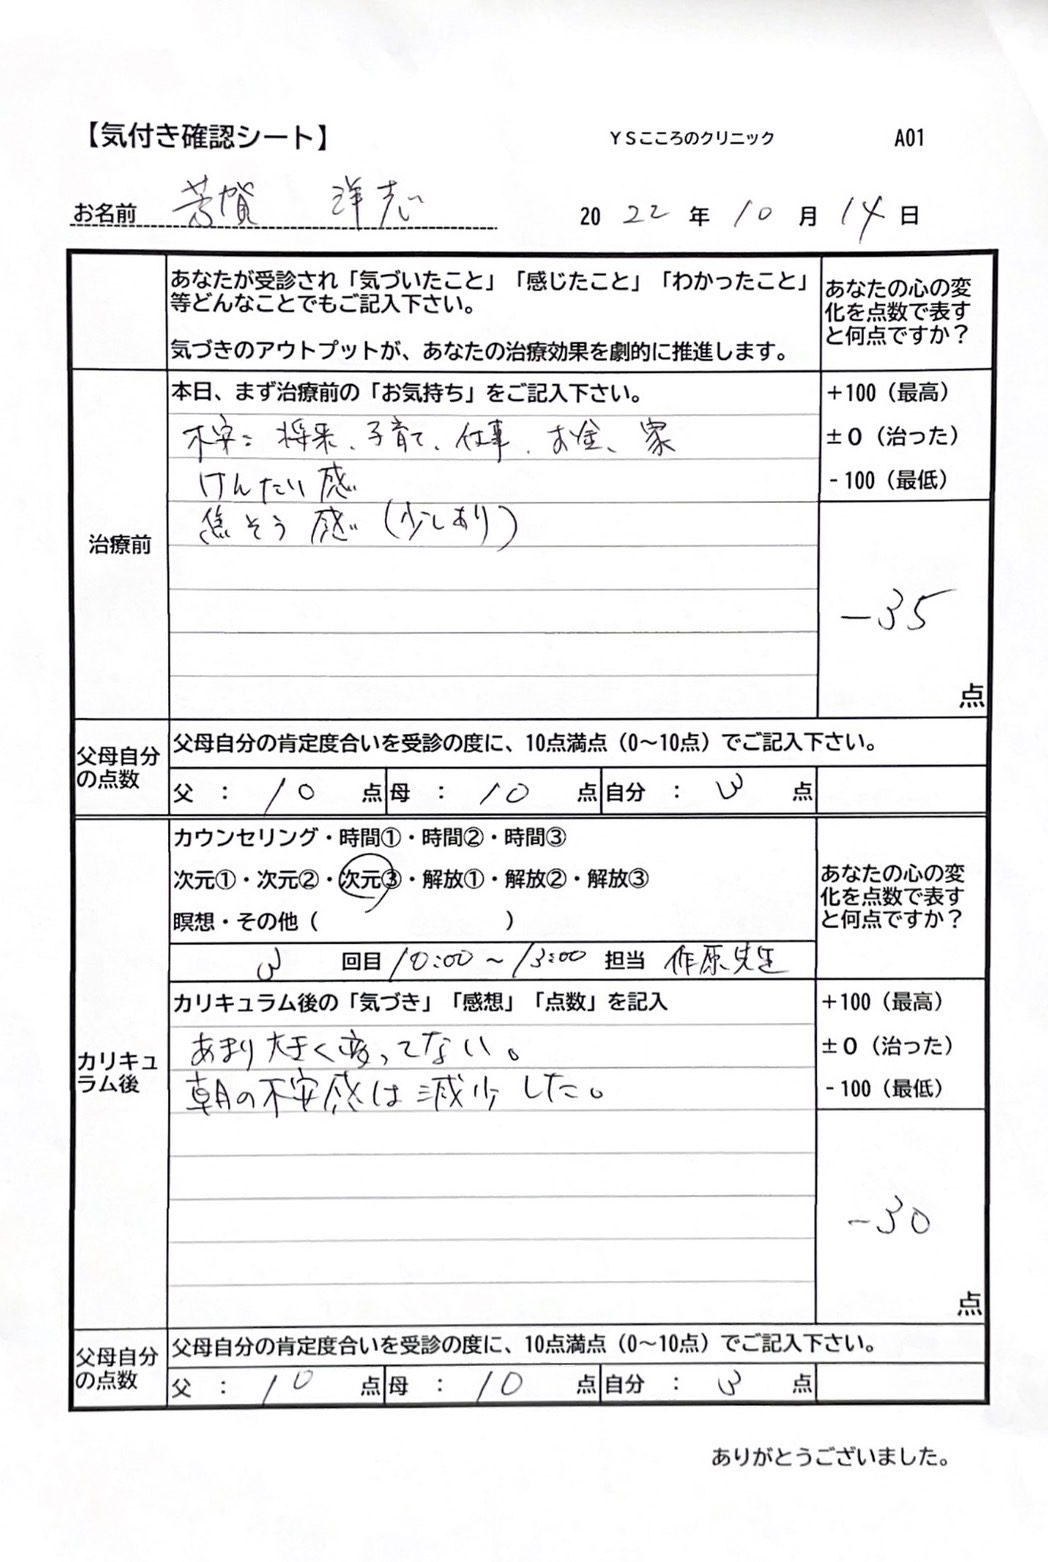 【気付き確認シート】 YSこころのクリニック A01
お名前 芳賀 洋志 2022年10月14日
あなたが受診され「気づいたこと」「感じたこと」「わかったこと」
等どんなことでもご記入下さい。
気づきのアウトプットが、あなたの治療効果を劇的に推進します。
あなたの心の変
化を点数で表す
と何点ですか？
治療前
本日、まず治療前の「お気持ち」をご記入下さい。
不安：将来、子育て、仕事、お金、家
けんたい感
焦そう感（少しあり）
+100（最高）
±0（治った）
-100（最低）
-35
点
父母自分
の点数
父母自分の肯定度合いを受診の度に、10点満点（0～10点）でご記入下さい。
父：10点 母：10点 自分：3点
カウンセリング・時間①・時間②・時間③
次元①・次元②・次元③・解放①・解放②・解放③
瞑想・その他（ ）
3回目 10:00～13:00 担当 作原先生
あなたの心の変
化を点数で表す
と何点ですか？
カリキュ
ラム後
カリキュラム後の「気づき」「感想」「点数」を記入
あまり大きく変ってない。
朝の不安感は減少した。
+100（最高）
±0（治った）
-100（最低）
-30
点
父母自分
の点数
父母自分の肯定度合いを受診の度に、10点満点（0～10点）でご記入下さい。
父：10点 母：10点 自分：3点
ありがとうございました。